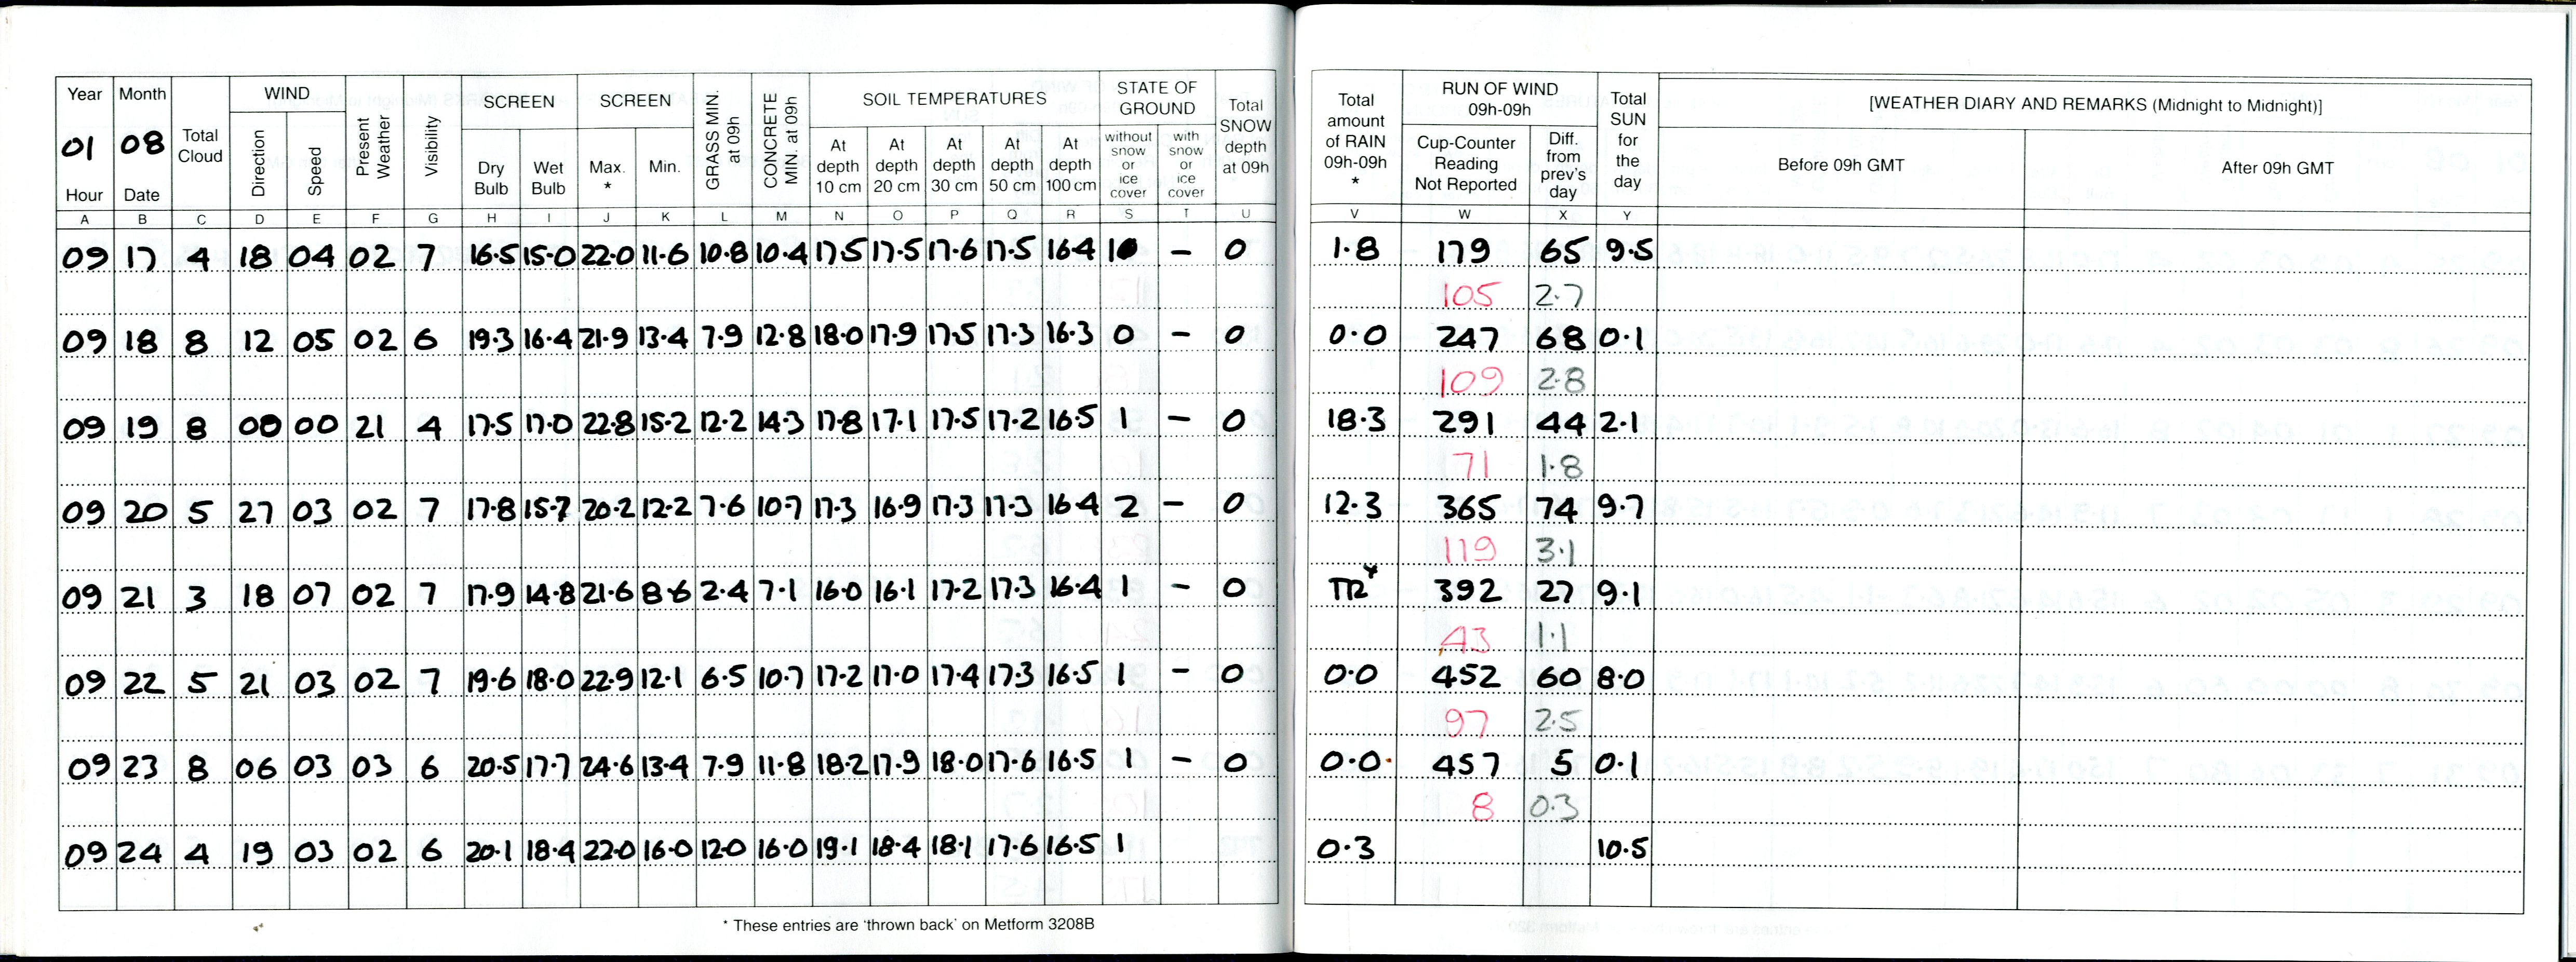 Year Month Total Cloud WIND Present Weather Visibility SCREEN SCREEN GRASS MIN. at 09h CONCRETE MIN. at 09h SOIL TEMPERATURES STATE OF GROUND Total SNOW depth at 09h Total amount of RAIN 09h-09h * RUN OF WIND 09h-09h Total SUN for the day [WEATHER DIARY AND REMARKS (Midnight to Midnight)]
01 08 Direction Speed Dry Bulb Wet Bulb Max. * Min. At depth 10 cm At depth 20 cm At depth 30 cm At depth 50 cm At depth 100 cm without snow or ice cover with snow or ice cover Cup-Counter Reading Not Reported Diff. from prev's day Before 09h GMT After 09h GMT
Hour Date
A B C D E F G H I J K L M N O P Q R S T U V W X Y
09 17 4 18 04 02 7 16.5 15.0 22.0 11.6 10.8 10.4 17.5 17.5 17.6 17.5 16.4 1 – 0 1.8 179 65 9.5
105 2.7
09 18 8 12 05 02 6 19.3 16.4 21.9 13.4 7.9 12.8 18.0 17.9 17.5 17.3 16.3 0 – 0 0.0 247 68 0.1
109 2.8
09 19 8 00 00 21 4 17.5 17.0 22.8 15.2 12.2 14.3 17.8 17.1 17.5 17.2 16.5 1 – 0 18.3 291 44 2.1
71 1.8
09 20 5 27 03 02 7 17.8 15.7 20.2 12.2 7.6 10.7 17.3 16.9 17.3 17.3 16.4 2 – 0 12.3 365 74 9.7
119 3.1
09 21 3 18 07 02 7 17.9 14.8 21.6 8.6 2.4 7.1 16.0 16.1 17.2 17.3 16.4 1 – 0 TR 392 27 9.1
43 1.1
09 22 5 21 03 02 7 19.6 18.0 22.9 12.1 6.5 10.7 17.2 17.0 17.4 17.3 16.5 1 – 0 0.0 452 60 8.0
97 2.5
09 23 8 06 03 03 6 20.5 17.7 24.6 13.4 7.9 11.8 18.2 17.9 18.0 17.6 16.5 1 – 0 0.0 457 5 0.1
8 0.3
09 24 4 19 03 02 6 20.1 18.4 22.0 16.0 12.0 16.0 19.1 18.4 18.1 17.6 16.5 1 0.3 10.5
* These entries are 'thrown back' on Metform 3208B